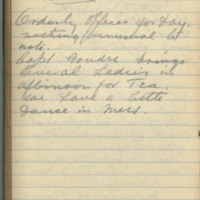 Orderly Officer for Day.
nothing unusual to
note.
Capt brings
several Ladies in
afternoon for Tea.
We have a little
dance in Mess.